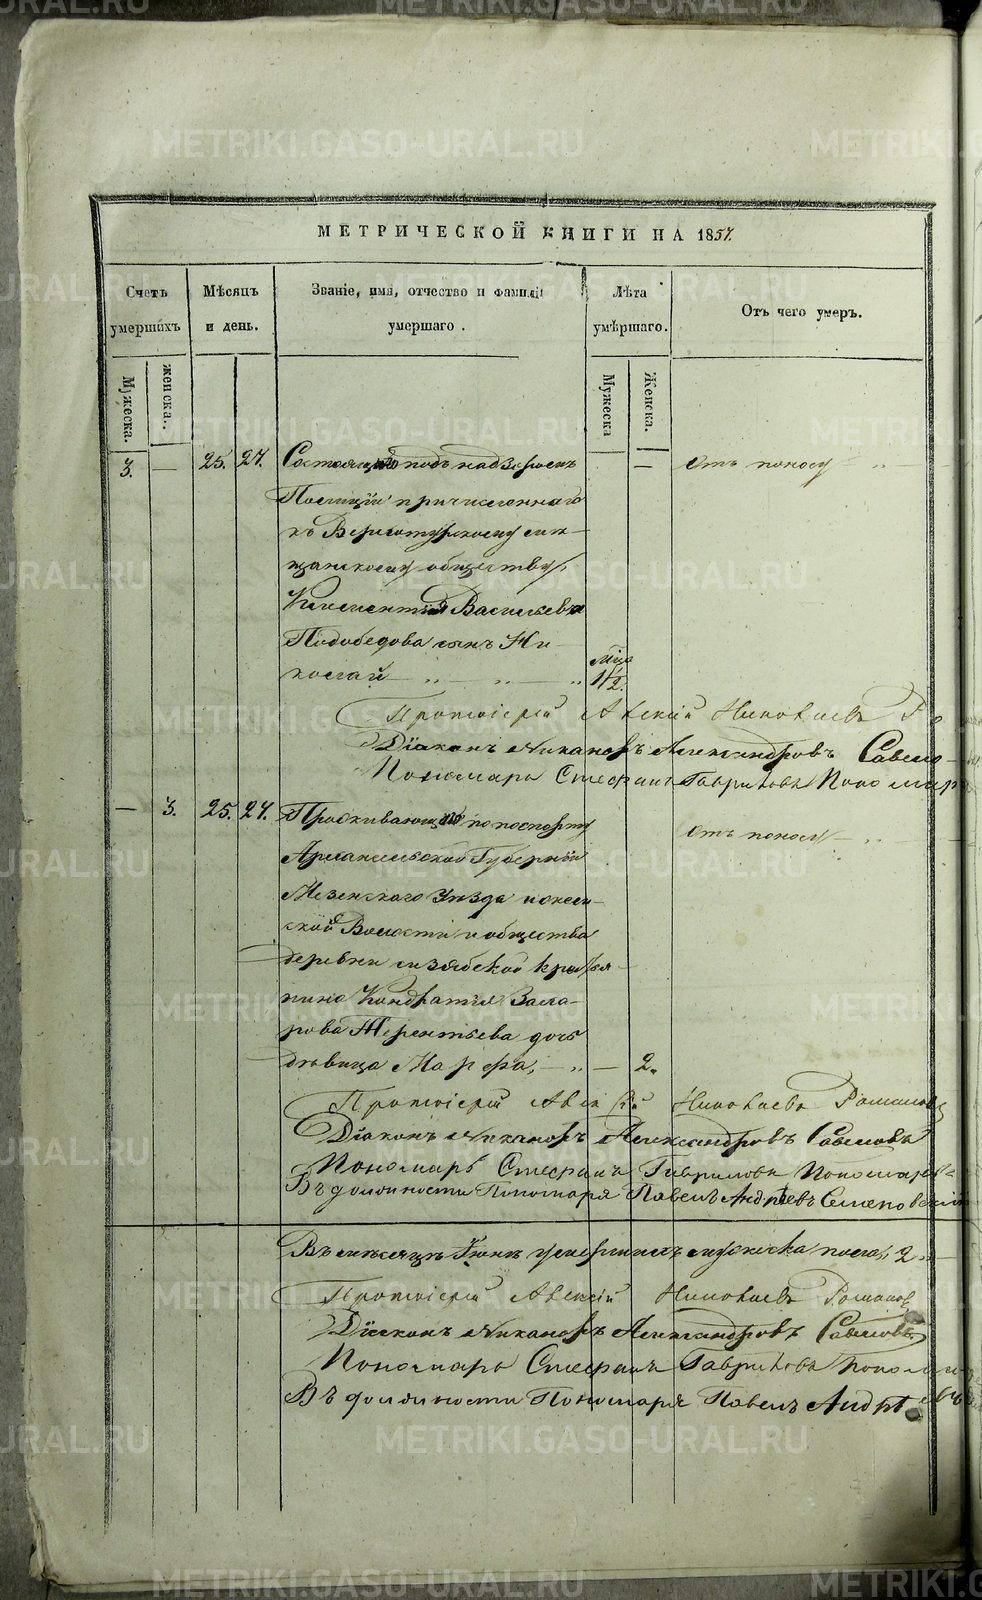 МЕТРИЧЕСКОЙ КНИГИ НА 1857.
Счетъ умершихъ
Мѣсяцъ и день.
Званіе, имя, отчество и фамилі умершаго.
Лѣта умершаго.
Отъ чего умеръ.
Мужеска.
женска.
Мужеска
Женска.
3. — 25. 27. Состоящаго подъ надзоромъ — Отъ поносу
Полиціи причисленнаго
къ Верхотурскому мѣ-
щанскому обществу
Климентія Васильева
Подобедова сынъ Ни-
колай — 1 1/2.
Протоіерей Алексій Николаевъ Ро
Діаконъ Никаноръ Александровъ Савело
Пономарь Стефанъ Гавриловъ Пономар
— 3. 25. 27. Проживающаго по паспорту Отъ поносу
Архангельской Губерніи
Мезенскаго Уѣзда
ской Волости и общества
деревни кресть-
янина Кондратія Заха-
рова Терентьева дочь
дѣвица Марфа, — 2.
Протоіерей Алексій Николаевъ Романовъ
Діаконъ Никаноръ Александровъ
Пономарь Стефанъ Гавриловъ Пономаревъ
Въ должности Пономаря Павелъ Андреевъ
Въ мѣсяцѣ Іюнѣ умершихъ мужеска пола 2
Протоіерей Алексій Николаевъ Романов
Діаконъ Никаноръ Александровъ
Пономарь Стефанъ Гавриловъ
Въ должности Пономаря Павелъ Андре
METRIKI.GASO-URAL.RU